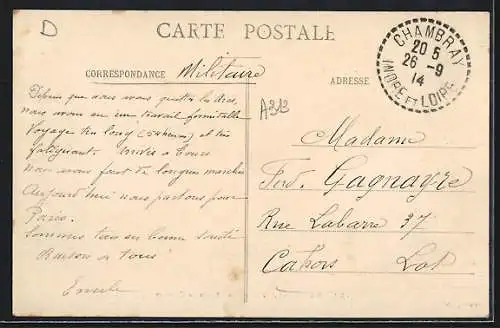 D
CARTE POSTALE
CORRESPONDANCE Militaire
ADRESSE
CHAMBRAY
20 5
26 -9
14
INDRE ET LOIRE
A212
Depuis que nous avons quitté
nous avons eu un travail formidable
Voyage très long et très
fatiguant. arrivés à Tours
nous avons fait de longues marches
Aujourd'hui nous partons pour
Paris.
Sommes tous en bonne santé
Baisers à tous
Madame
Ferd. Gagnayre
Rue Labarre 37
Cahors Lot